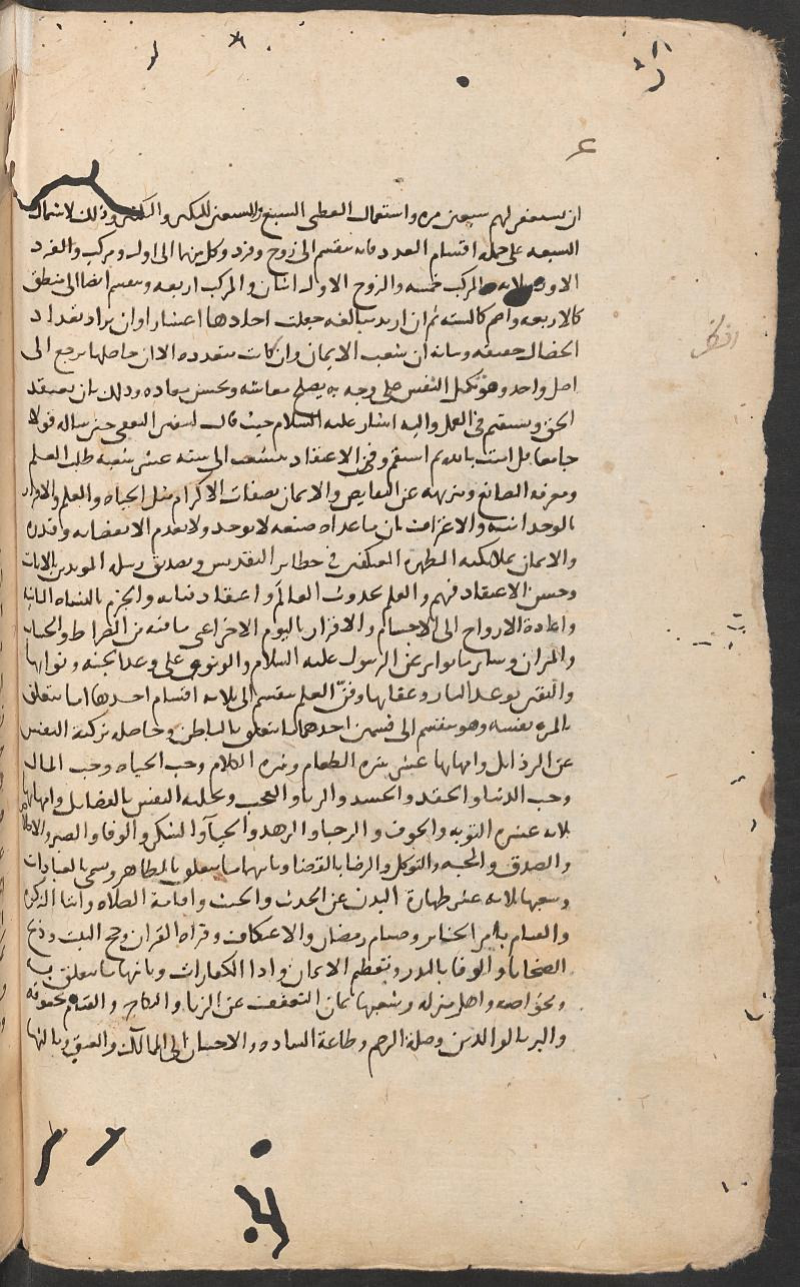 ٤
ان يستغفر لهم سبعين مره واستعمال لفظى السبع والسبعين للتكثير وذلك لاشتمال
السبعه على جمله اقسام العدد فانه ينقسم الى زوج وفرد وكل منهما الى اول ومركب والفرد
الاول ثلاثه والمركب خمسه والزوج الاول اثنان والمركب اربعه وينقسم ايضا الى منطق
كالاربعه واصم كالسته ثم ان اريد مبالغه جعلت احادها اعشارا وان يراد تعداد
الخصال حقيقه وبيانه ان شعب الايمان وان كانت متعدده الا ان حاصلها يرجع الى
اصل واحد وهو تكميل النفس على وجه به يصلح معاشه ويحسن معاده وذلك بان يعتقد
الحق ويستقيم في العمل واليه اشار عليه السلام حيث قال لسفيان الثقفى حين ساله قولا
جامعا قل امنت بالله ثم استقم وفن الاعتقاد ينشعب الى سته عشر شعبه طلب العلم
ومعرفه الصانع وتنزيهه عن النقايص والايمان بصفات الاكرام مثل الحياه والعلم والاقرار
بالوحدانيه والاعتراف بان ماعداه صنعه لايوجد ولا يعدم الا بقضايه وقدره
والايمان بملايكته المطهره المعتكفين في حظاير القدس وتصديق رسله المويدين بالايات
وحسن الاعتقاد فيهم والعلم بحدوث العالم واعتقاد فنايه والجزم بالنشاه الثانيه
واعادة الارواح الى الاجسام والاقرار باليوم الاخر اعنى بما فيه من الصراط والحساب
والميزان وساير ما تواتر عن الرسول عليه السلام والوثوق على وعد الجنه وثوابها
واليقين بوعيد النار وعقابها وفن العلم ينقسم الى ثلاثه اقسام احدها ما يتعلق
بالمرء نفسه وهو ينقسم الى قسمين احدهما ما يتعلق بالباطن وحاصله تزكية النفس
عن الرذايل وامهاتها عشر شره الطعام وشره الكلام وحب الجاه وحب المال
وحب الدنيا والحقد والحسد والريا والعجب وتحليه النفس بالفضايل وامهاتها
ثلاثه عشره التوبه والخوف والرجا والزهد والحيا والشكر والوفا والصبر والاخلاص
والصدق والمحبه والتوكل والرضا بالقضا وثانيهما ما يتعلق بالظاهر ويسمى بالعبادات
وشعبها ثلاثه عشر طهارة البدن عن الحدث والخبث واقامة الصلاه وايتا الزكوه
والقيام بامر الجنايز وصيام رمضان والاعتكاف وقراه القران وحج البيت وذبح
الضحايا والوفا بالنذر وتعظيم الايمان وادا الكفارات وثانيها ما يتعلق به
وبخواصه واهل منزله وشعبها ثمان التعفف عن الزنا والنكاح والقيام بحقوقه
والبر بالوالدين وصلة الرحم وطاعة الساده والاحسان الى المماليك والعتق وثالثها